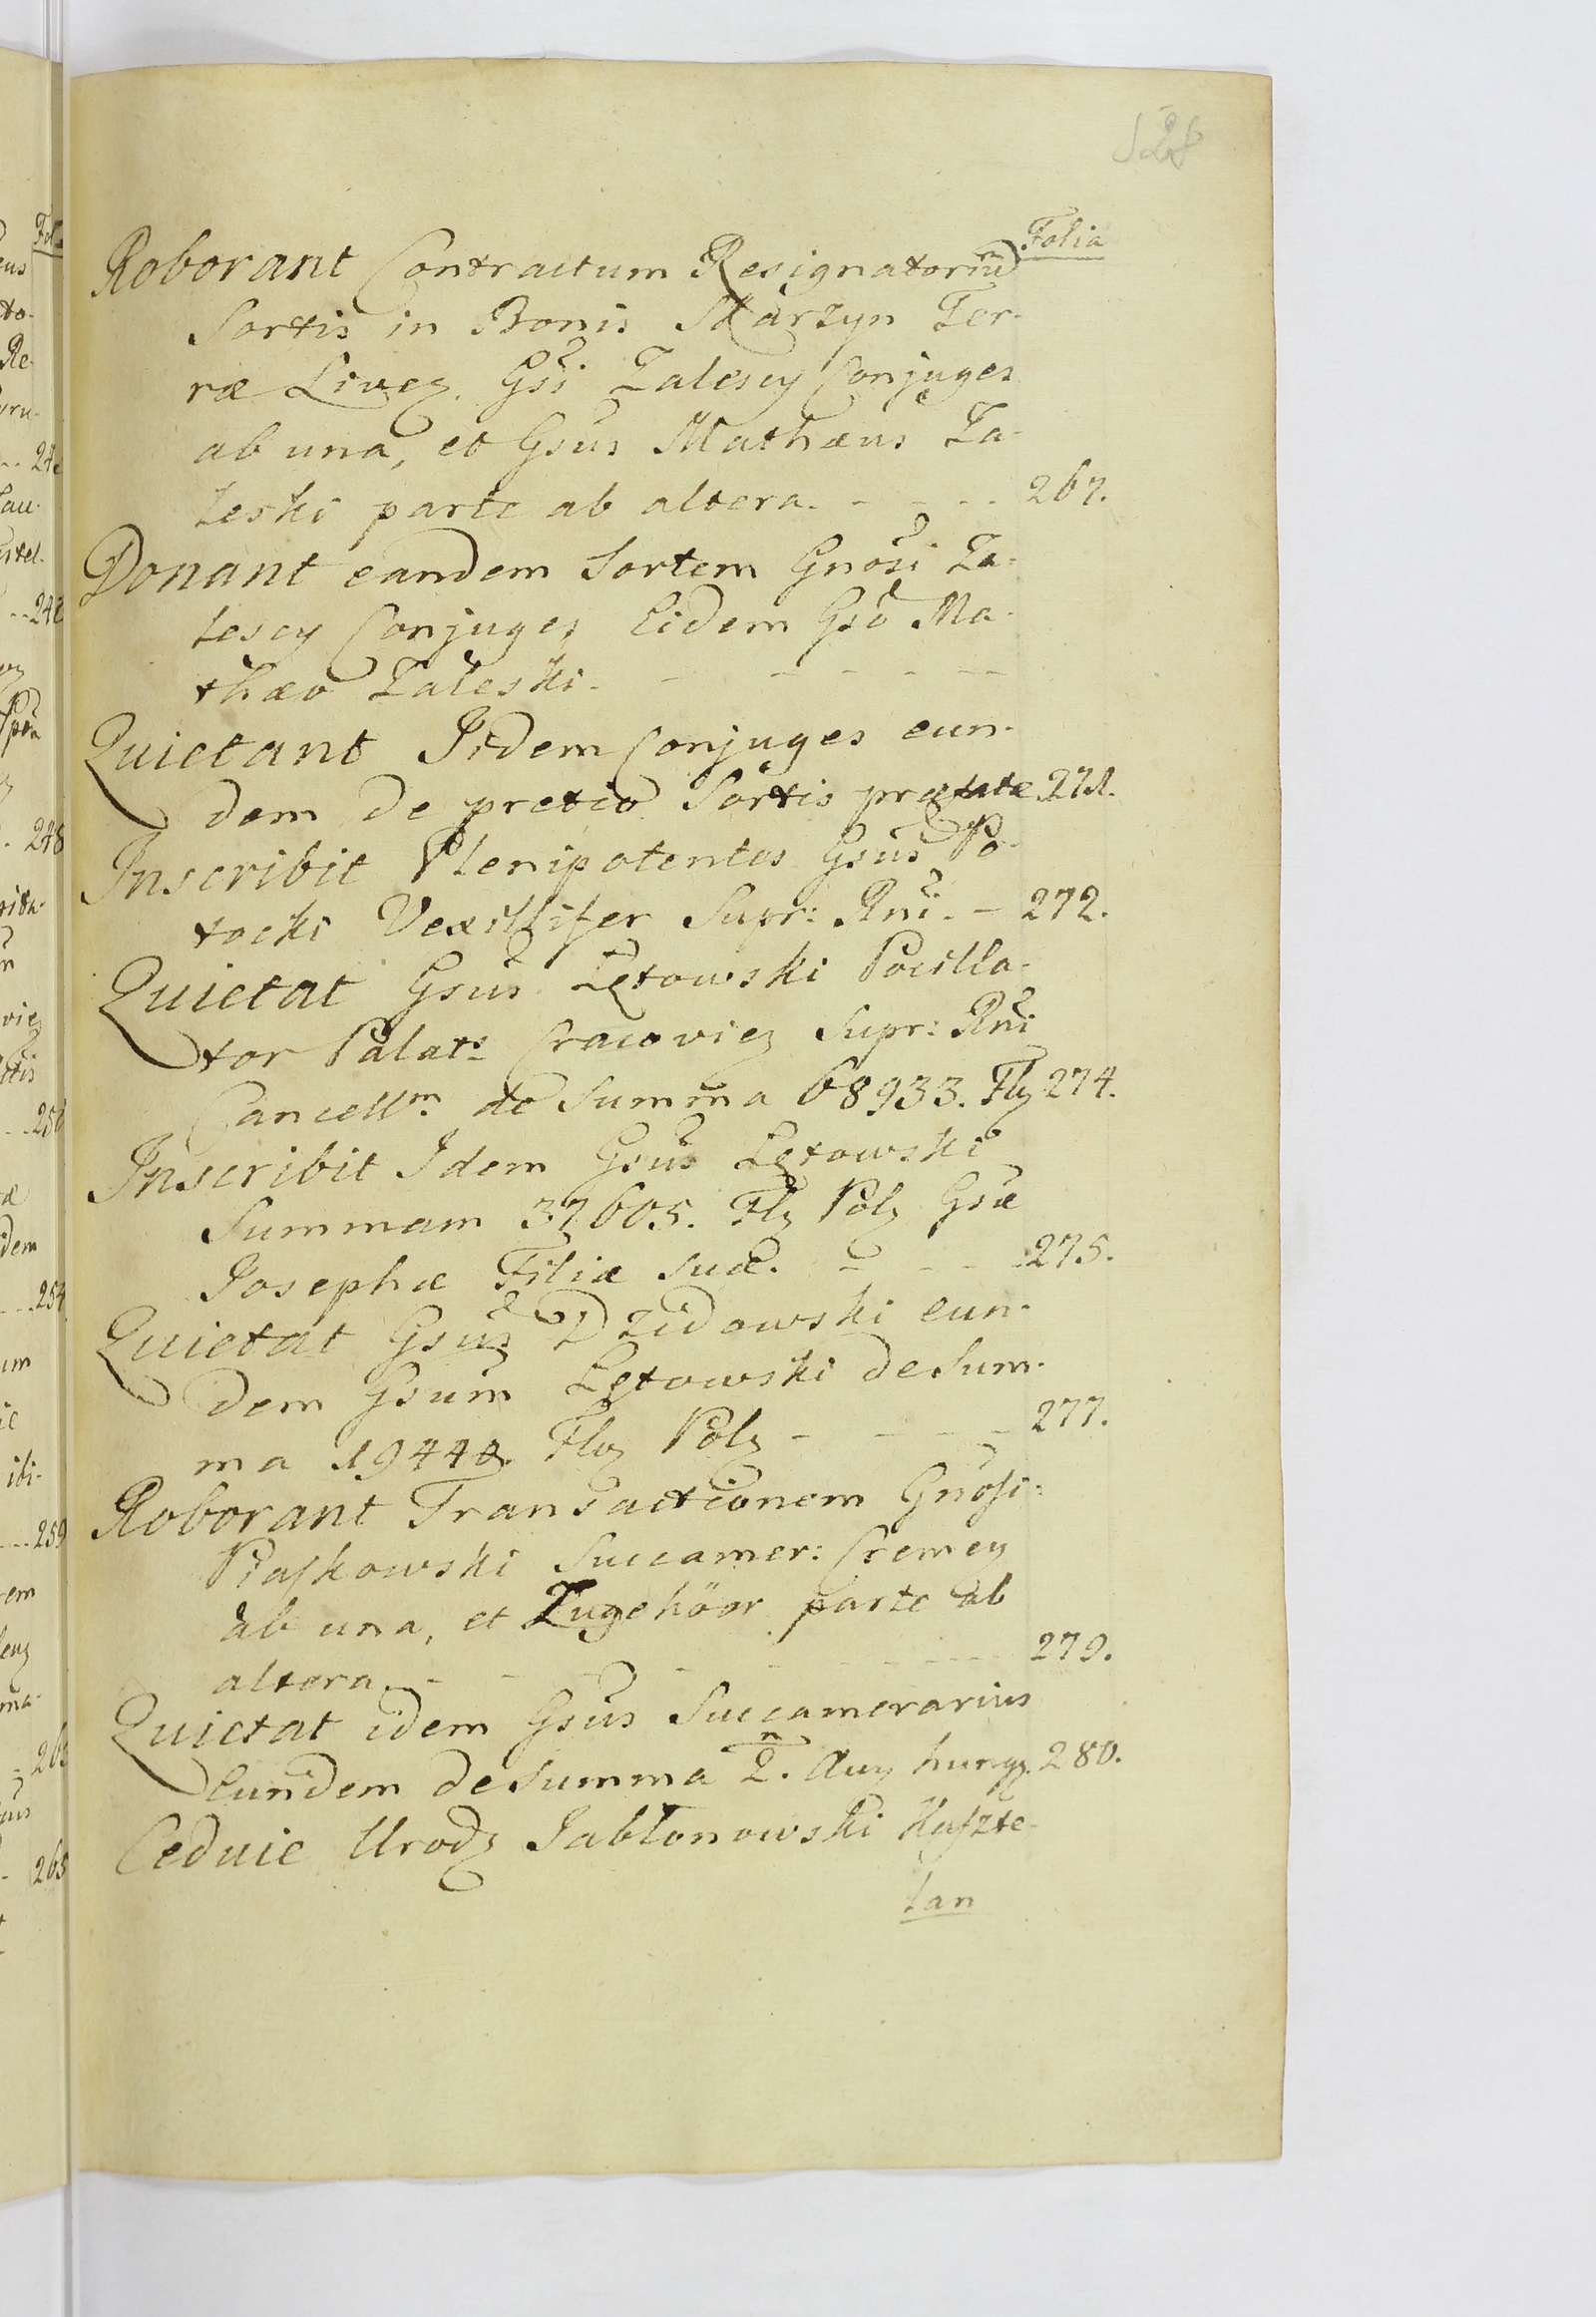 Folia
Roborant Contractum Resignatoriũ
Sortis in Bonis Skarzyn Ter-
ræ Livez. Gsi Zalescy Conjuges
ab una, et Gsus Mathæus Za-
leski parte ab altera. - - - - 267.
Donant eandem Sortem Gnosi Za-
lescy Conjuges Eidem Gso Ma-
thæo Zaleski. - - - - -
Quietant Iidem Conjuges eun-
dem de pretio Sortis præfatæ 271.
Inscribit Plenipotentas Gsus Po-
tocki Vexillifer Supr: Rni. - 272.
Quietat Gsus Łętowski Pocilla-
tor Palats Cracoviez Supr: Rni
Cancellm de Summa 68933. Flz 274.
Inscribit Idem Gsus Łętowski
Summam 37605. Flz Polz Gsæ
Josephæ Filiæ suæ. - - - 275.
Quietat Gsus Dzidowski eun-
dem Gsum Łętowski de Sum-
ma 19440. Flz Polz - - - - 277.
Roborant Transactionem Gnosi:
Piaskowski Succamer: Cremen
ab una, et Zugehöor parte ab
altera. - - - - - - - 279.
Quietat idem Gsus Succamerarius
Eundem de Summa 2. Auy hungz. 280.
Ceduie Urodz Jabłonowski Kaszte-
lan